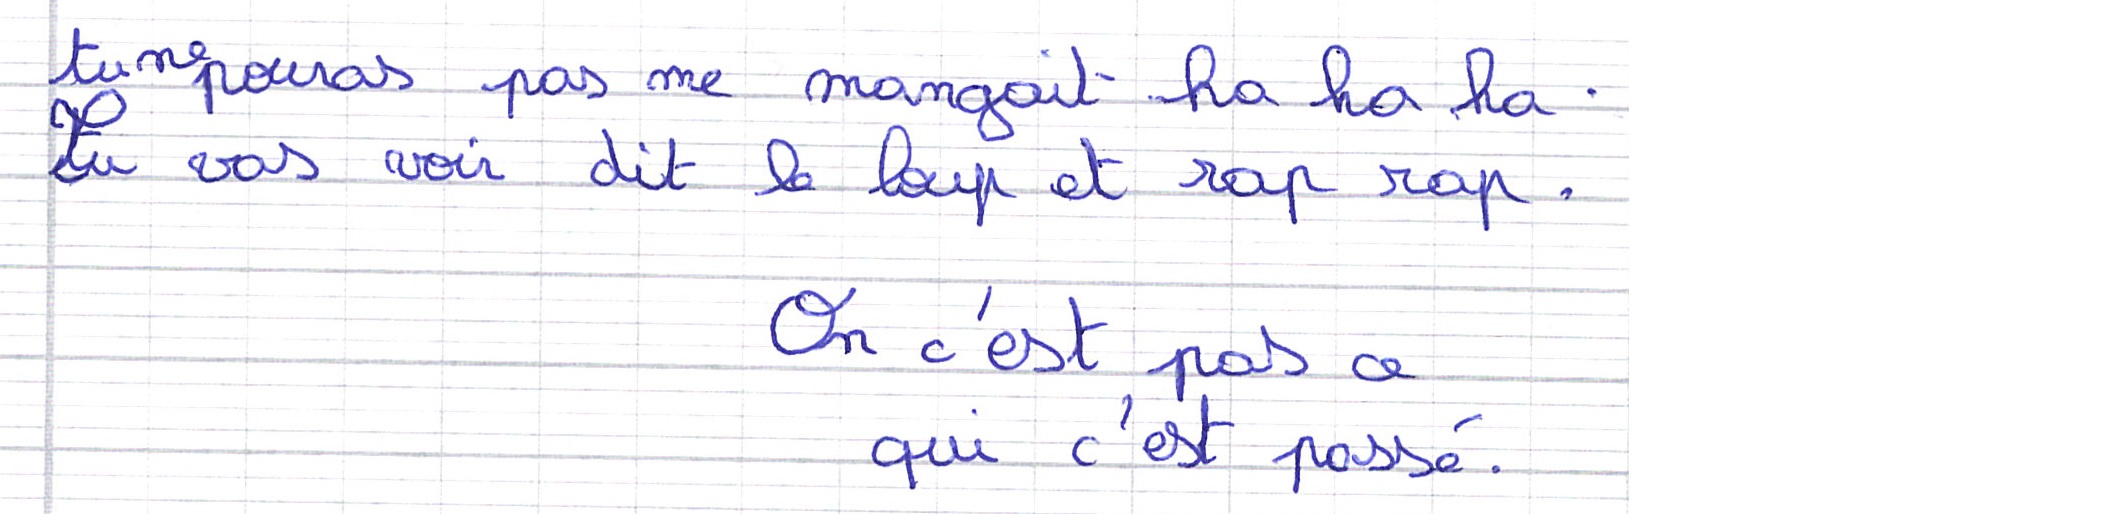 tu ne pouras pas me mangait ha ha ha.
Tu vas voir dit le loup et rap rap.
On c'est pas ce
qui c'est passé.